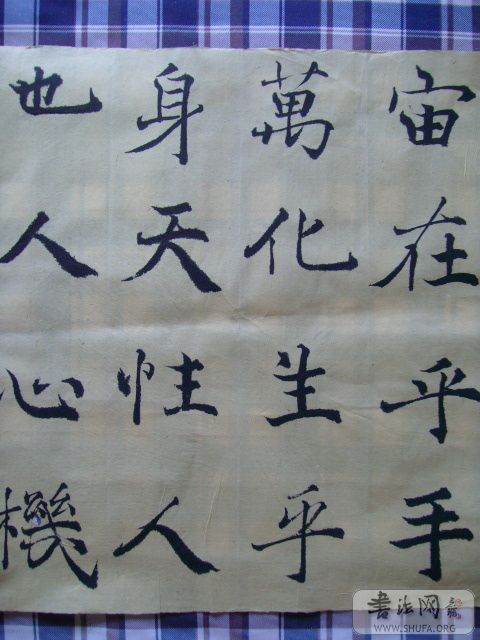 宙在乎手
萬化生乎
身天性人
也人心機
书法网
WWW.SHUFA.ORG